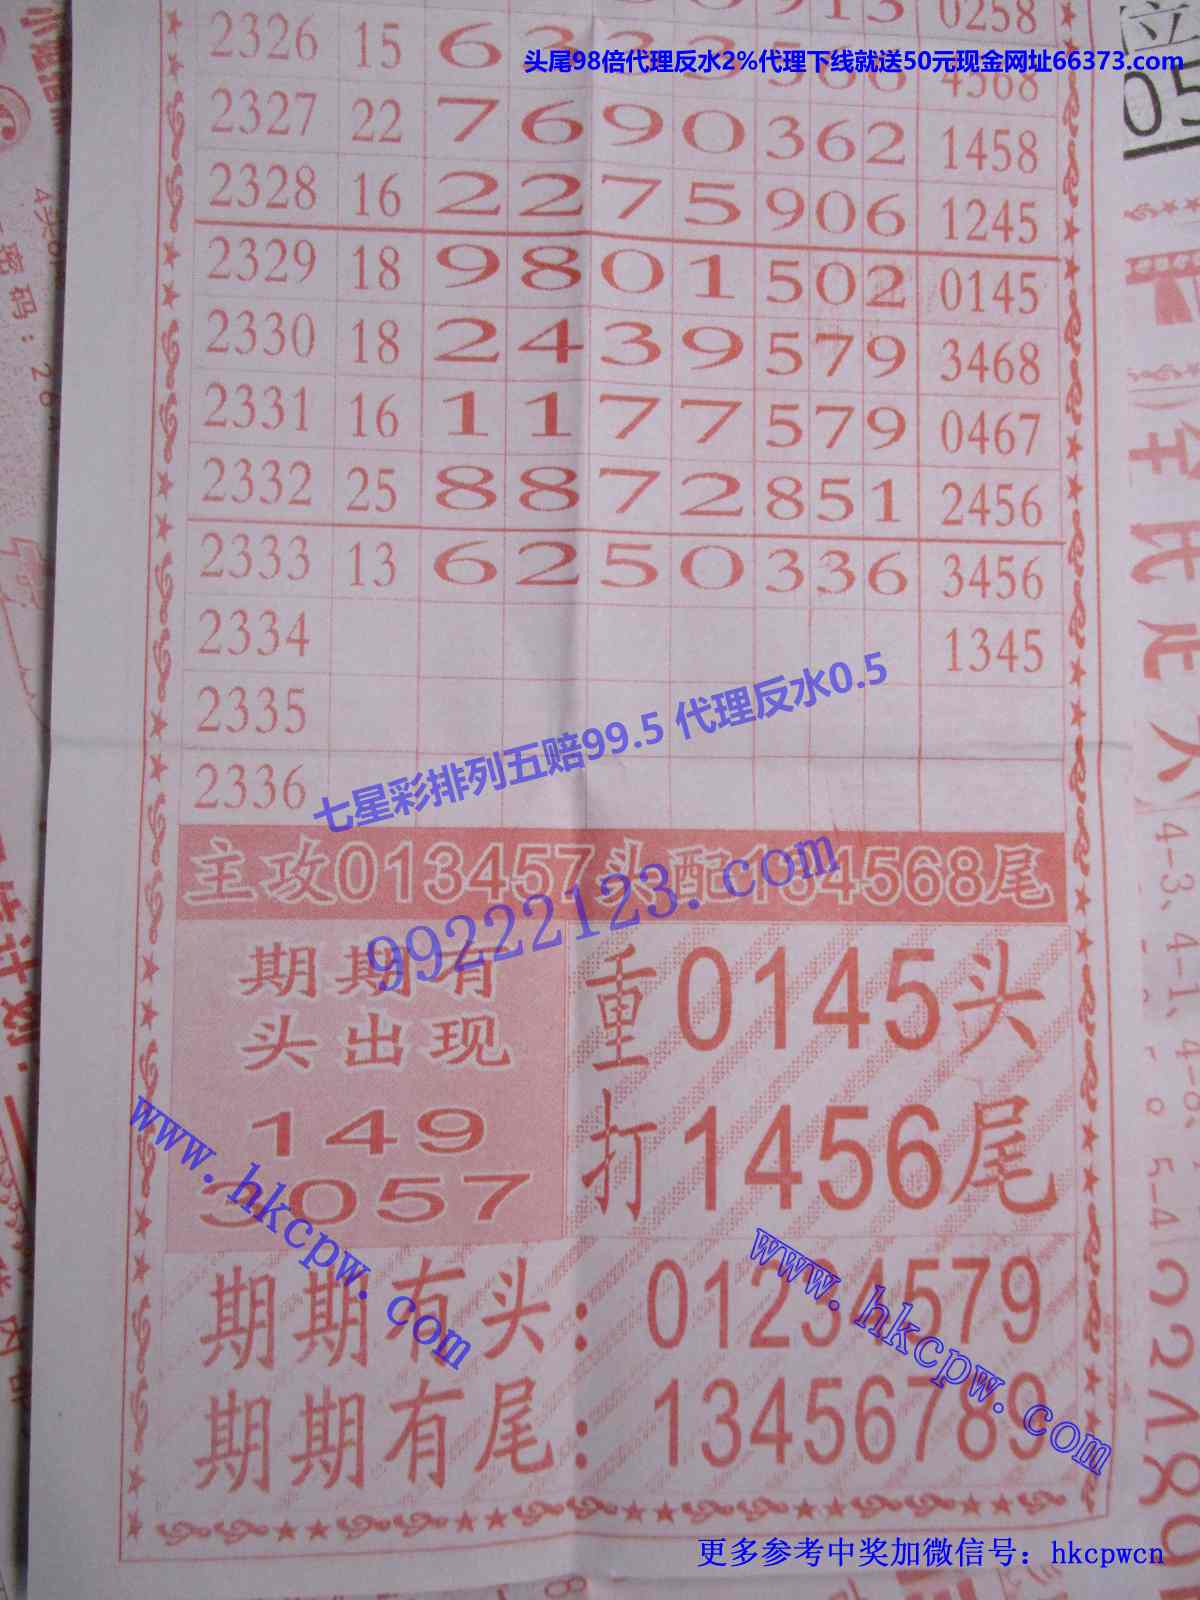 0258
2326 15 6 2 3 3 566 4568
头尾98倍代理反水2%代理下线就送50元现金网址66373.com
2327 22 7 6 9 0 362 1458
2328 16 2 2 7 5 906 1245
2329 18 9 8 0 1 502 0145
2330 18 2 4 3 9 579 3468
2331 16 1 1 7 7 579 0467
2332 25 8 8 7 2 851 2456
2333 13 6 2 5 0 336 3456
2334 1345
2335
2336
七星彩排列五赔99.5 代理反水0.5
主攻013457头配134568尾
99222123.com
期期有
头出现
149
3057
重0145头
打1456尾
www.hkcpw.com
期期有头：01234579
期期有尾：13456789
www.hkcpw.com
更多参考中奖加微信号：hkcpwcn